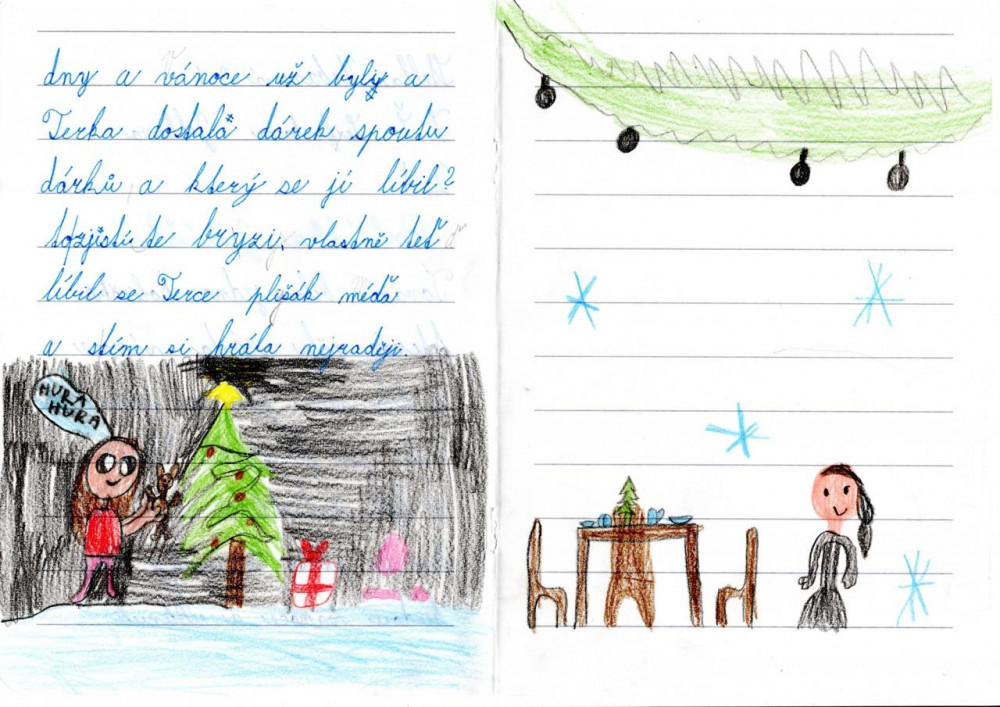 dny a vánoce už byly a
Terka dostala dárek spoutu
dárků a který se jí líbil?
to zjistíte bryzi, vlastně teť
líbil se Terce plišák méďa
a stím si hrála nejraději.
HURÁ
HURÁ